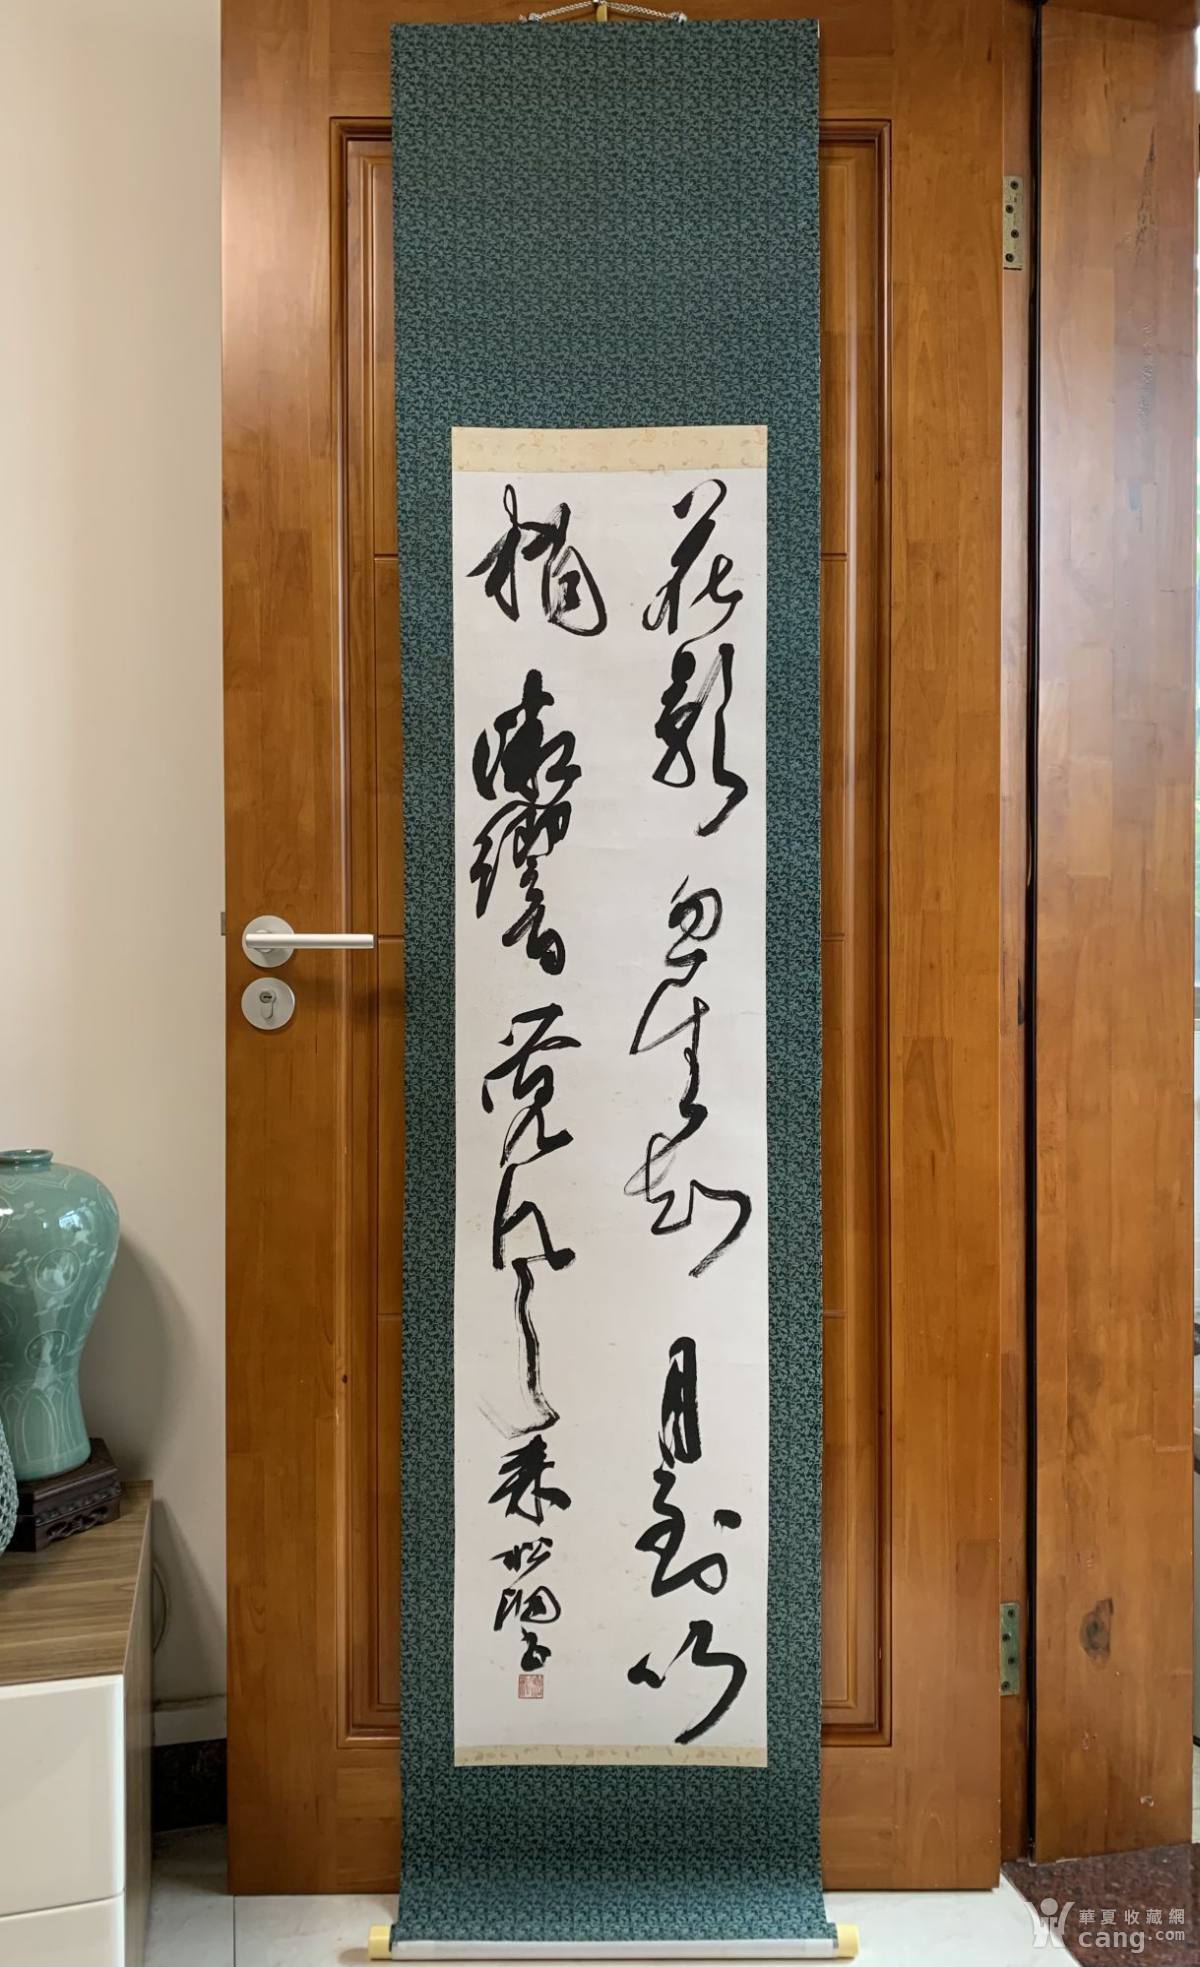 花影忽生知月到竹
梢微響覺風來 松書
華夏收藏網
cang.com